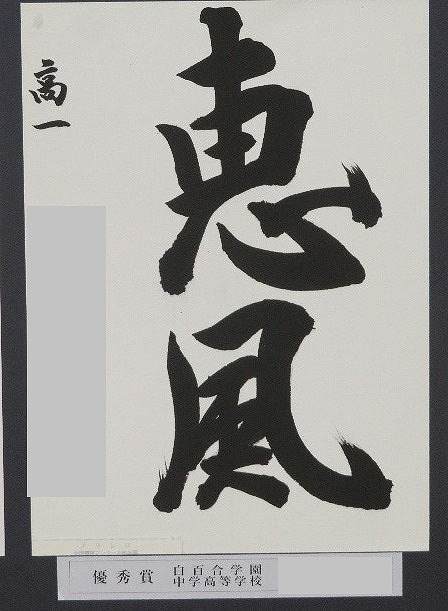 恵風
高一
優秀賞 白百合学園
中学高等学校